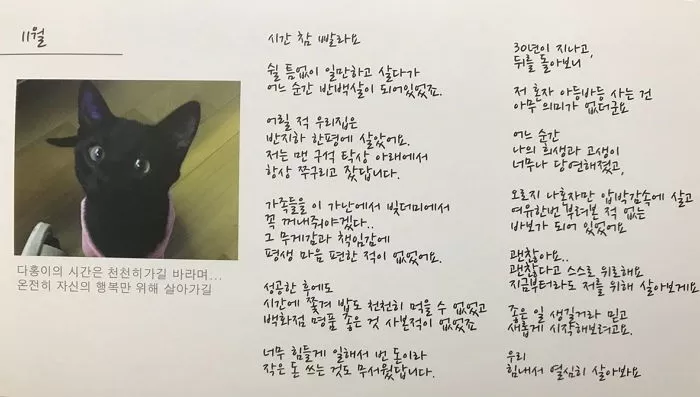 11월
다홍이의 시간은 천천히가길 바라며...
온전히 자신의 행복만 위해 살아가길
시간 참 빨라요
쉴 틈없이 일만하고 살다가
어느 순간 반백살이 되어있었죠.
어릴 적 우리집은
반지하 한평에 살았어요.
저는 맨 구석 탁상 아래에서
항상 쭈구리고 잤답니다.
가족들을 이 가난에서 빚더미에서
꼭 꺼내줘야겠다..
그 무게감과 책임감에
평생 마음 편한 적이 없었어요.
성공한 후에도
시간에 쫓겨 밥도 천천히 먹을 수 없었고
백화점 명품 좋은 것 사본적이 없었죠
너무 힘들게 일해서 번 돈이라
작은 돈 쓰는 것도 무서웠답니다.
30년이 지나고,
뒤를 돌아보니
저 혼자 아등바등 사는 건
아무 의미가 없더군요
어느 순간
나의 희생과 고생이
너무나 당연해졌고,
오로지 나혼자만 압박감속에 살고
여유한번 부려본 적 없는
바보가 되어 있었어요
괜찮아요..
괜찮다고 스스로 위로해요
지금부터라도 저를 위해 살아보게요
좋은 일 생길거라 믿고
새롭게 시작해보려고요.
우리
힘내서 열심히 살아봐요